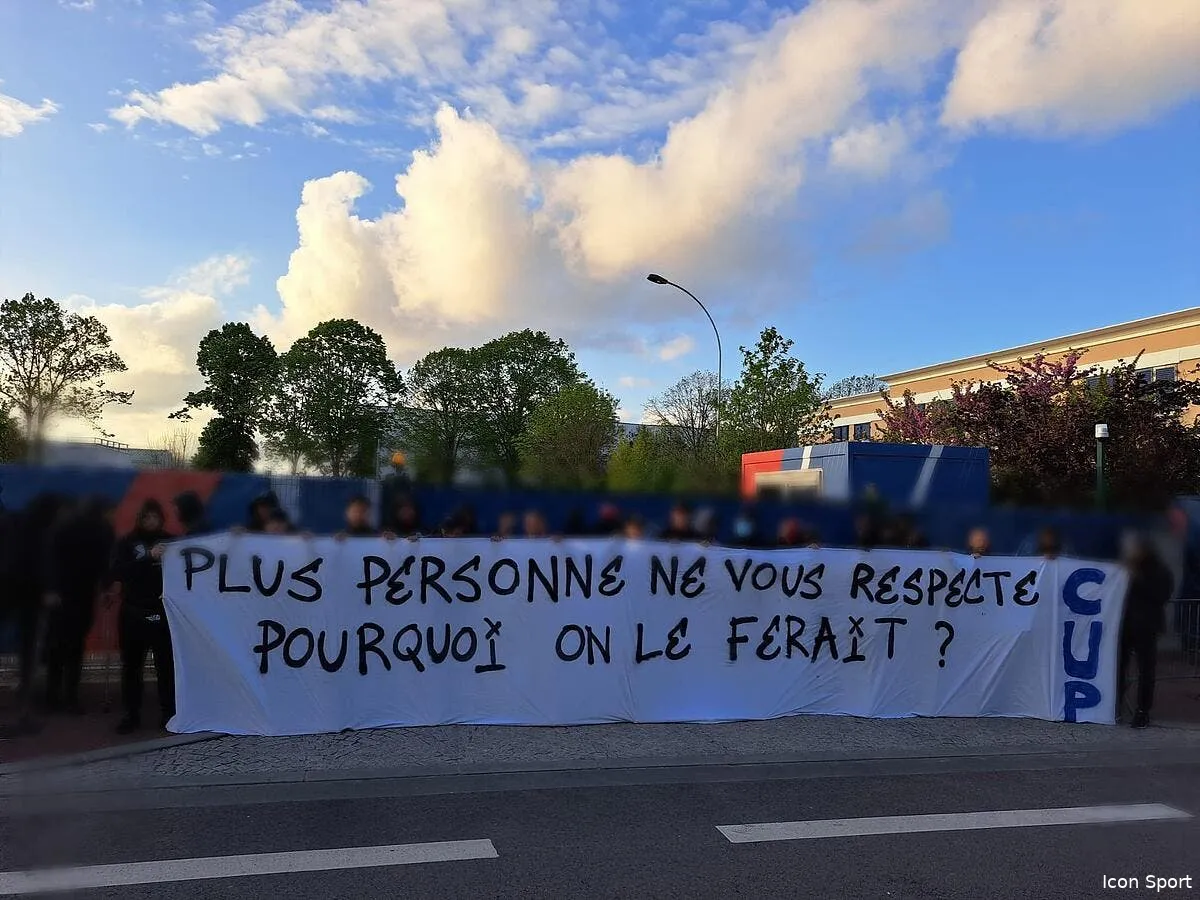 PLUS PERSONNE NE VOUS RESPECTE
POURQUOI ON LE FERAIT ?
CUP
Icon Sport